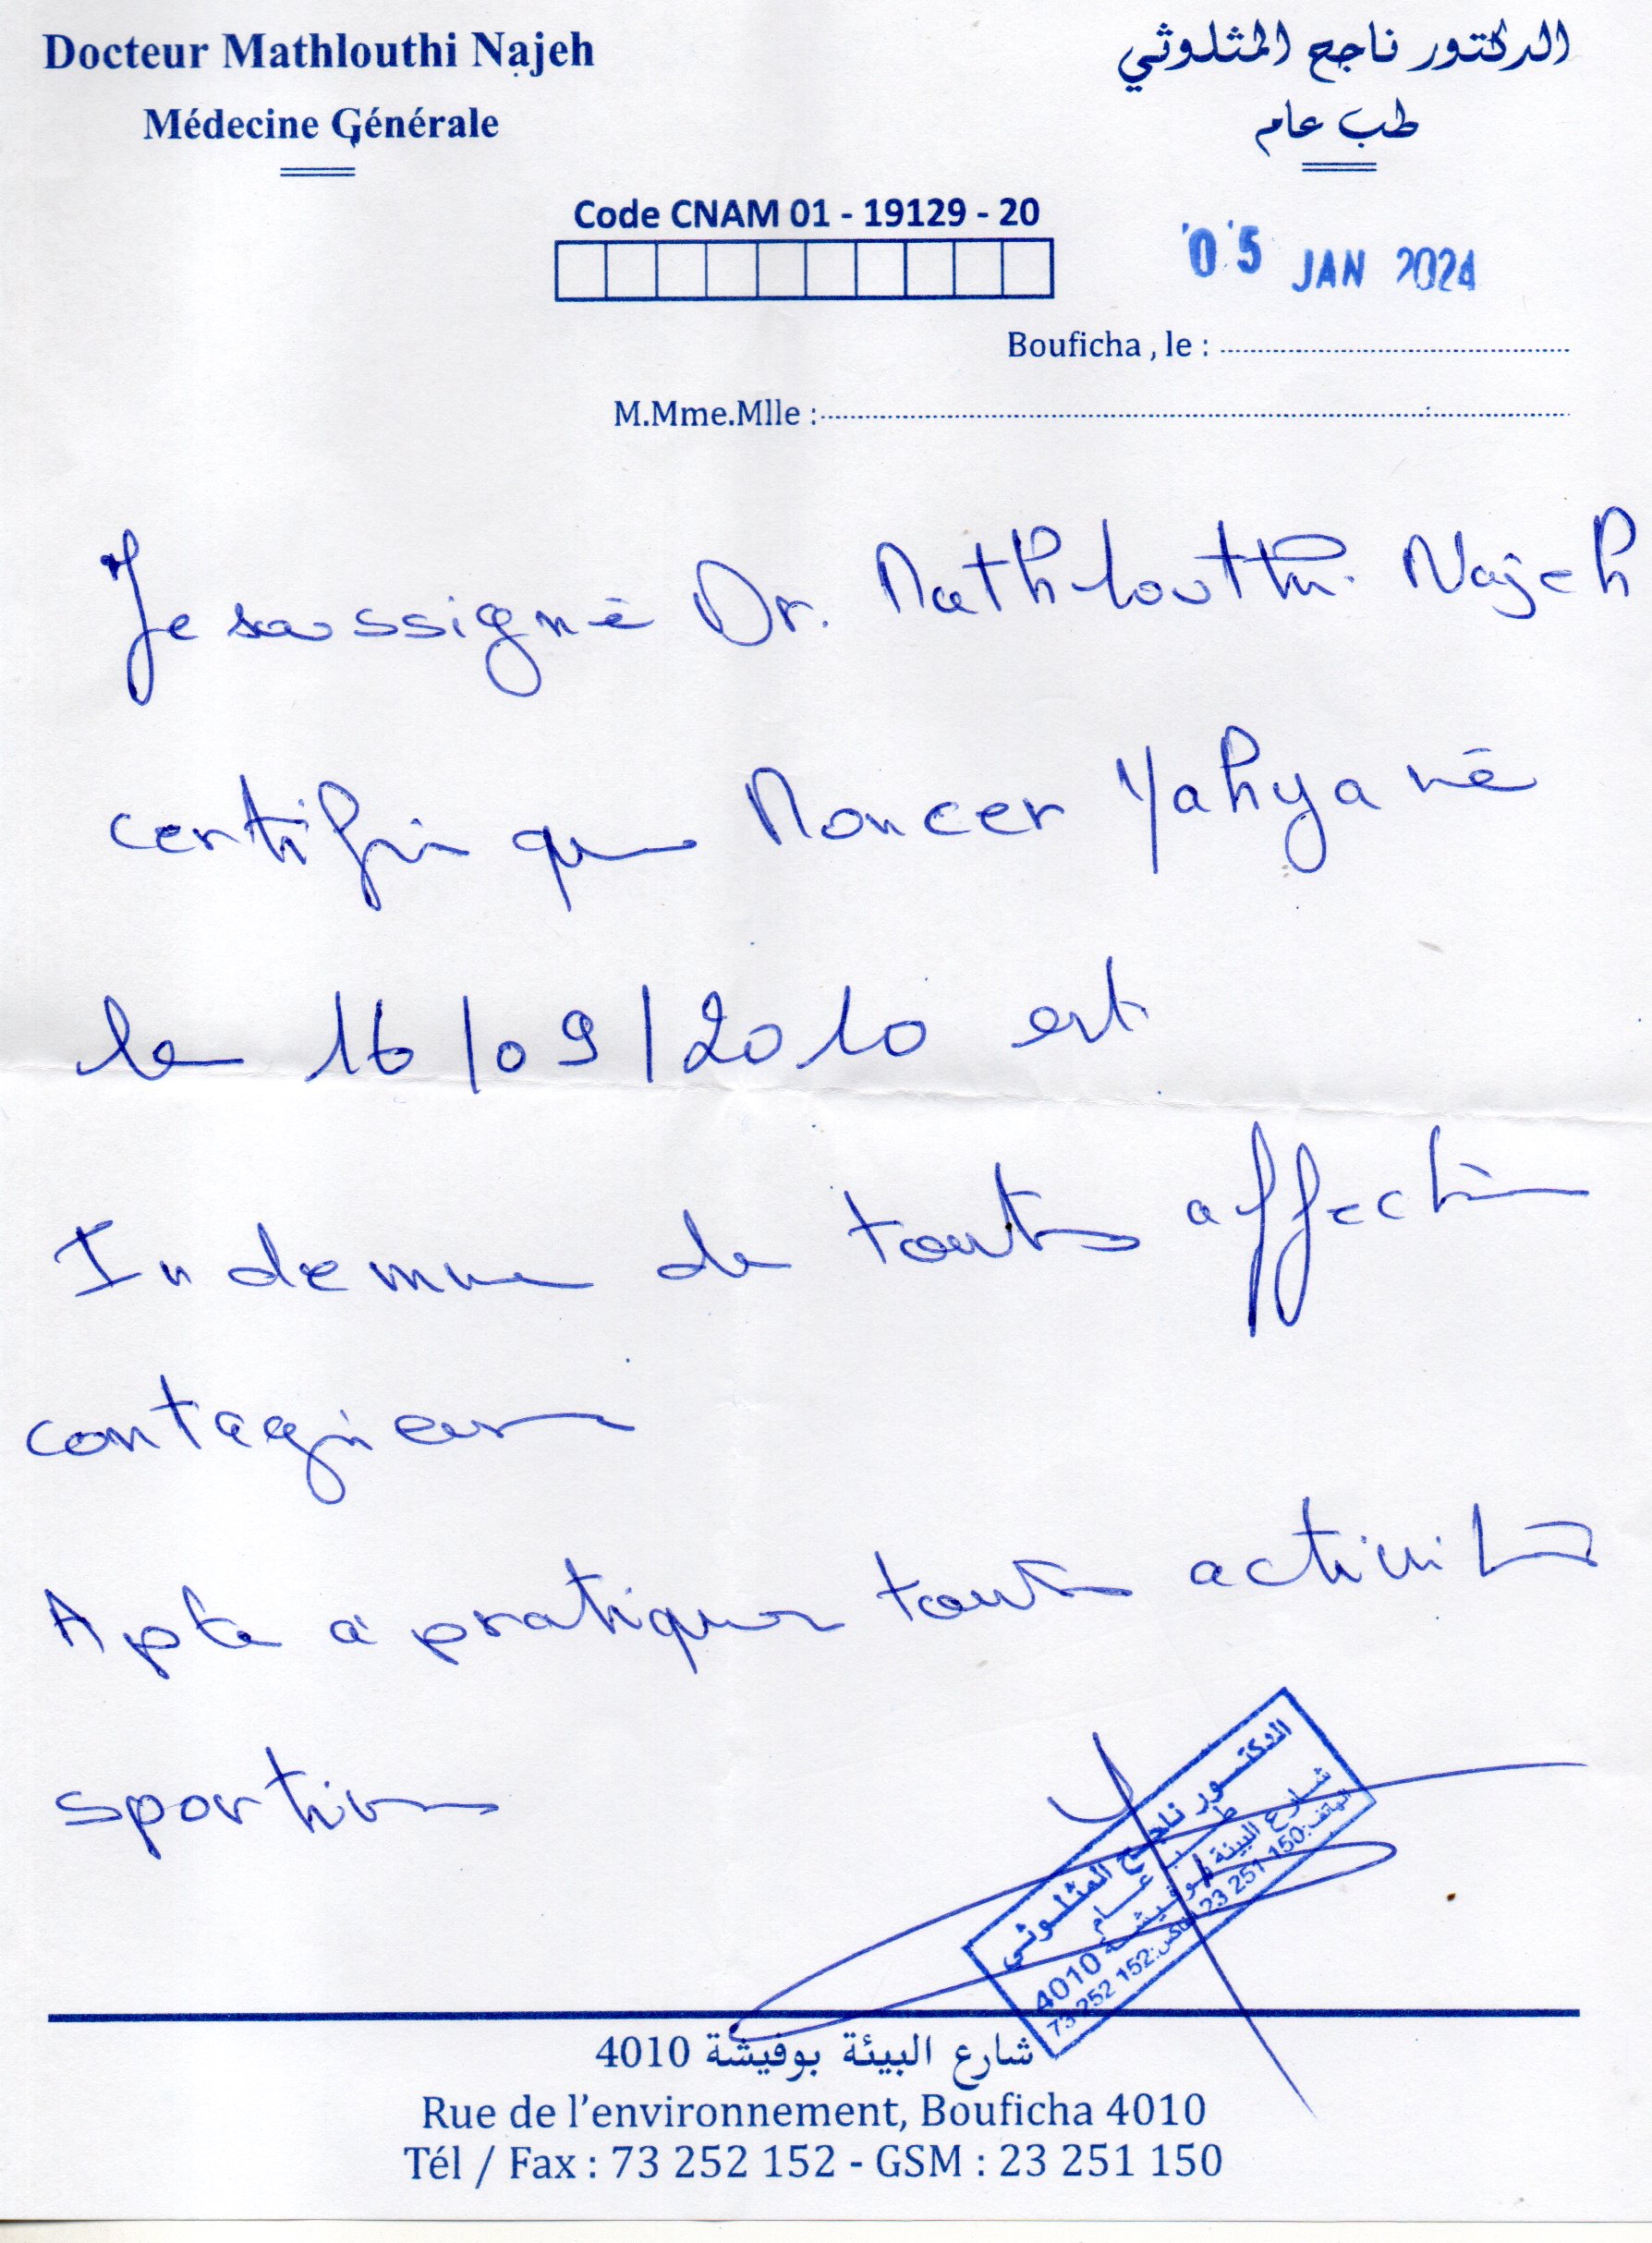 Docteur Mathlouthi Najeh
الدكتور ناجح المثلوثي
Médecine Générale
طب عام
Code CNAM 01 - 19129 - 20
05 JAN 2024
Bouficha , le :
M.Mme.Mlle :
Je soussigné Dr. Mathlouthi Najeh
certifie que Moncer Yahya né
le 16/09/2010 est
Indemne de toute affection
contagieuse
Apte à pratiquer toute activité
sportive
الدكتور ناجح المثلوثي
طب عام
شارع البيئة بوفيشة 4010
الهاتف:150 251 23 فاكس:152 252 73
شارع البيئة بوفيشة 4010
Rue de l'environnement, Bouficha 4010
Tél / Fax : 73 252 152 - GSM : 23 251 150